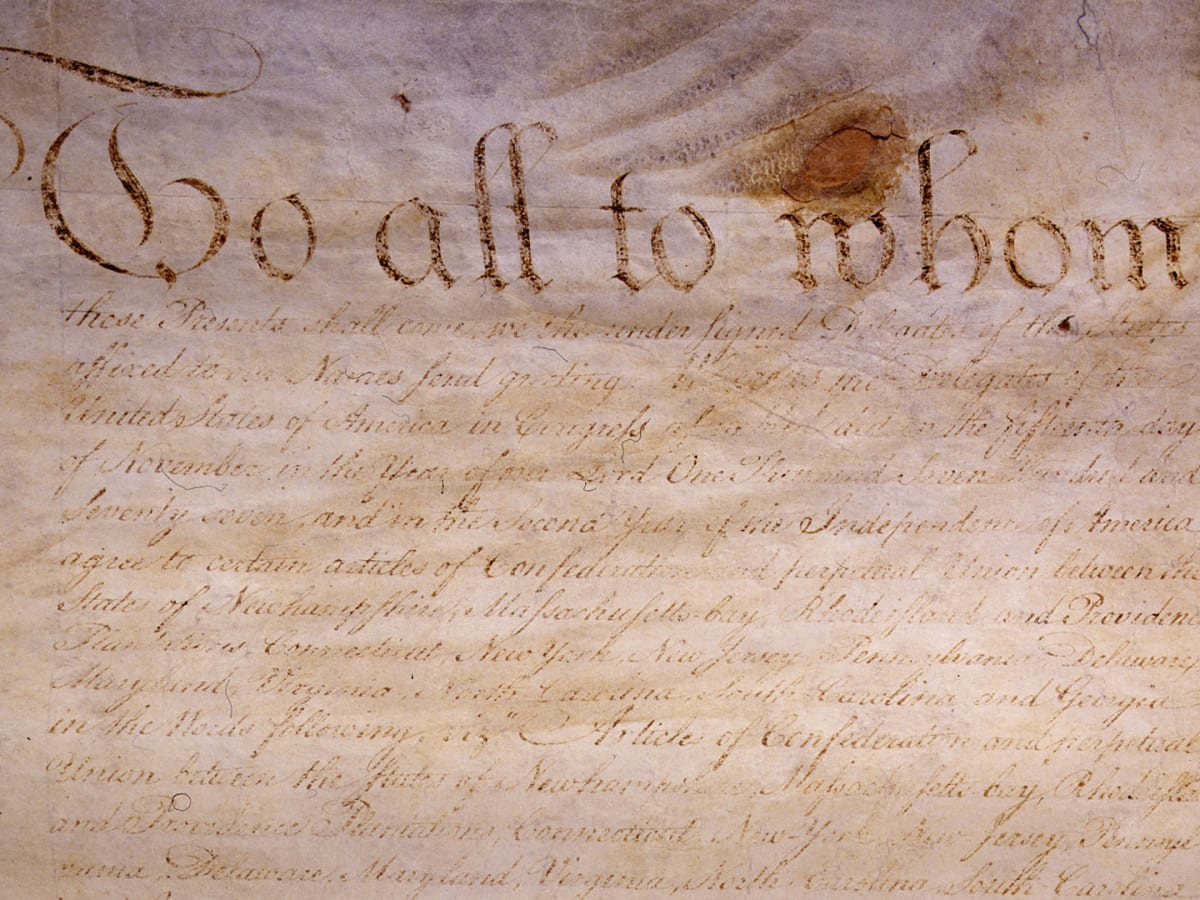 To all to whom
these Presents shall come, we the under signed Delegates of the States
affixed to our Names send greeting. Whereas the Delegates of the
United States of America in Congress assembled did on the fifteenth day
of November in the Year of our Lord One Thousand Seven Hundred and
Seventy seven, and in the Second Year of the Independence of America
agree to certain articles of Confederation and perpetual Union between the
States of Newhampshire, Massachusetts-bay, Rhodeisland and Providence
Plantations, Connecticut, New York, New Jersey, Pennsylvania, Delaware,
Maryland, Virginia, North Carolina, South Carolina and Georgia
in the Words following, viz. "Articles of Confederation and perpetual
Union between the States of Newhampshire, Massachusetts-bay,
and Providence Plantations, Connecticut, New-York, New-Jersey,
Delaware, Maryland, Virginia, North Carolina, South Carolina